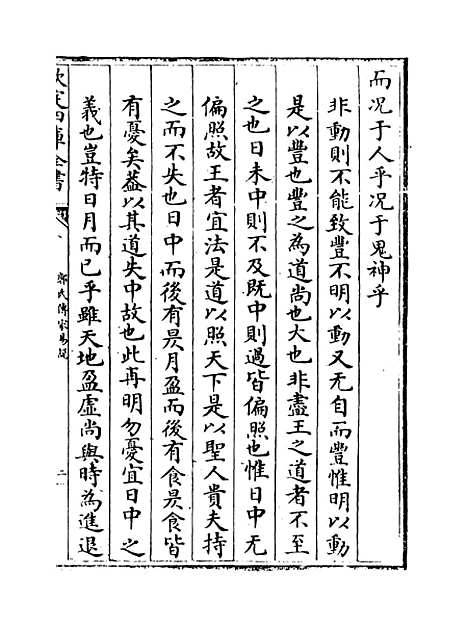 而況于人乎況于鬼神乎
非動則不能致豐不明以動又无自而豐惟明以動
是以豐也豐之為道尚也大也非盡王之道者不至
之也日未中則不及既中則過皆偏照也惟日中无
偏照故王者宜法是道以照天下是以聖人貴夫持
之而不失也日中而後有昃月盈而後有食昃食皆
有憂矣葢以其道失中故也此再明勿憂宜日中之
義也豈特日月而已乎雖天地盈虛尚與時為進退
欽定四庫全書
郭氏傳家易說
二